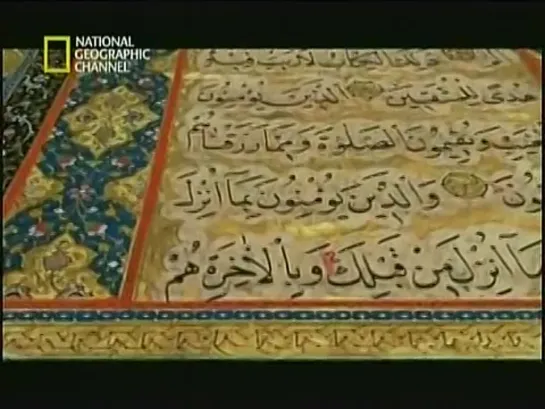 NATIONAL
GEOGRAPHIC
CHANNEL
ذلك الكتاب لا ريب فيه
هدى للمتقين الذين يؤمنون
ويقيمون الصلوة ومما رزقناهم
والذين يؤمنون بما انزل
ما انزل من قبلك وبالاخرة هم